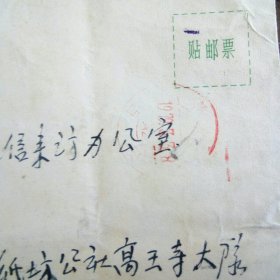 贴邮票
信来访办公室
纸坊公社高王寺大队